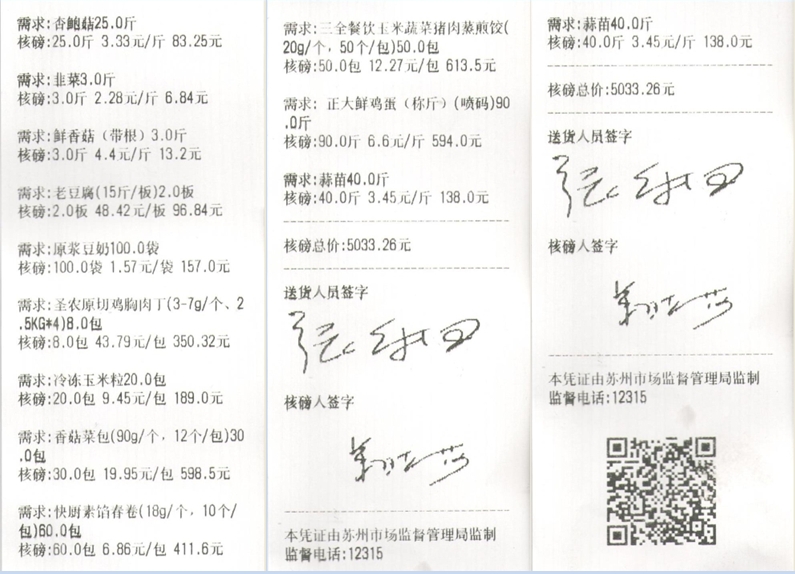 需求:杏鲍菇25.0斤
核磅:25.0斤 3.33元/斤 83.25元
需求:韭菜3.0斤
核磅:3.0斤 2.28元/斤 6.84元
需求:鲜香菇（带根）3.0斤
核磅:3.0斤 4.4元/斤 13.2元
需求:老豆腐(15斤/板)2.0板
核磅:2.0板 48.42元/板 96.84元
需求:原浆豆奶100.0袋
核磅:100.0袋 1.57元/袋 157.0元
需求:圣农原切鸡胸肉丁(3-7g/个、2
.5KG*4)8.0包
核磅:8.0包 43.79元/包 350.32元
需求:冷冻玉米粒20.0包
核磅:20.0包 9.45元/包 189.0元
需求:香菇菜包(90g/个, 12个/包)30
.0包
核磅:30.0包 19.95元/包 598.5元
需求:快厨素馅春卷(18g/个, 10个/
包)60.0包
核磅:60.0包 6.86元/包 411.6元
需求:三全餐饮玉米蔬菜猪肉蒸煎饺(
20g/个, 50个/包)50.0包
核磅:50.0包 12.27元/包 613.5元
需求: 正大鲜鸡蛋（称斤）(喷码)90
.0斤
核磅:90.0斤 6.6元/斤 594.0元
需求:蒜苗40.0斤
核磅:40.0斤 3.45元/斤 138.0元
核磅总价:5033.26元
送货人员签字
核磅人签字
本凭证由苏州市场监督管理局监制
监督电话:12315
需求:蒜苗40.0斤
核磅:40.0斤 3.45元/斤 138.0元
核磅总价:5033.26元
送货人员签字
核磅人签字
本凭证由苏州市场监督管理局监制
监督电话:12315